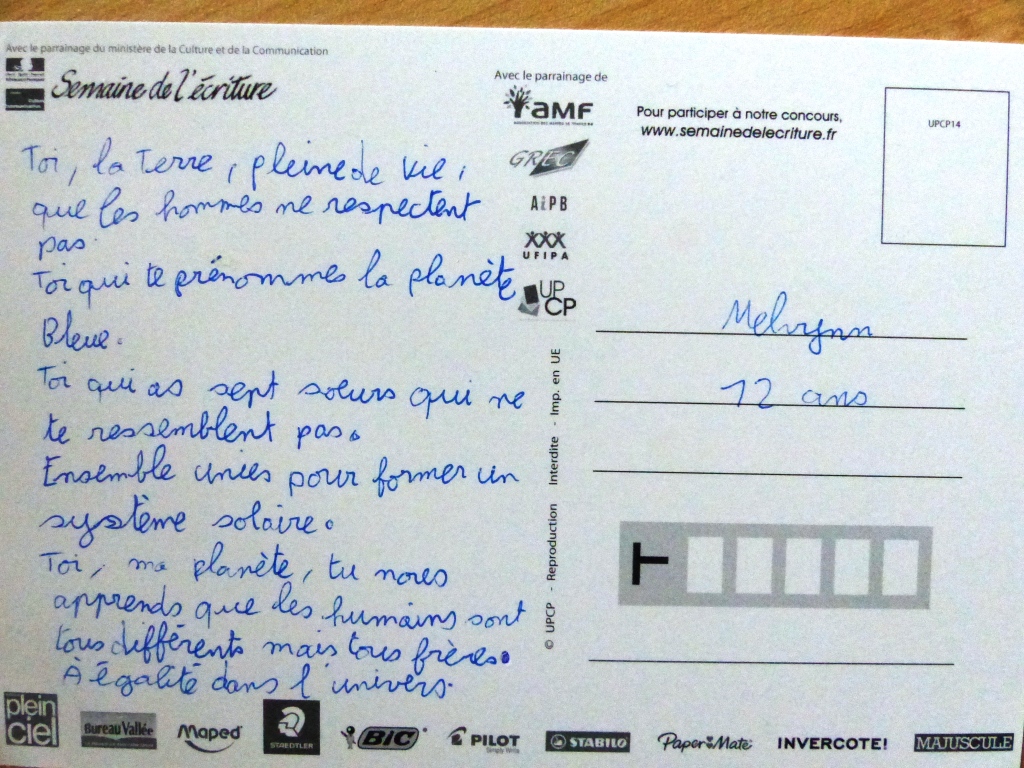 Avec le parrainage du ministère de la Culture et de la Communication
Semaine de l'écriture
Toi, la Terre, pleine de vie,
que les hommes ne respectent
pas.
Toi qui te prénommes la planète
Bleue.
Toi qui as sept soeurs qui ne
te ressemblent pas.
Ensemble unies pour former un
système solaire.
Toi, ma planète, tu nous
apprends que les humains sont
tous différents mais tous frères.
À égalité dans l'univers.
Avec le parrainage de
AMF
GREC
AIPB
UFIPA
UPCP
© UPCP - Reproduction Interdite - Imp. en UE
Pour participer à notre concours,
www.semainedelecriture.fr
UPCP14
Melvynn
12 ans
T
plein
ciel
Bureau Vallée
Maped
STAEDTLER
BIC
PILOT
Simply Write
STABILO
Paper Mate
INVERCOTE!
MAJUSCULE